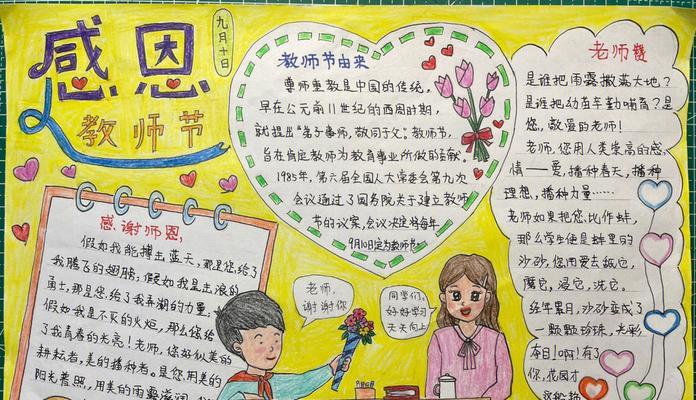 感恩
教师节
九月十日
教师节由来
尊师重教是中国的传统,
早在公元前11世纪的西周时期,
就提出“弟子事师,敬同于父”。教师节,
旨在肯定教师为教育事业所做的贡献。
1985年,第六届全国人大常委会第九次
会议通过了国务院关于建立教师
节的议案,会议决定将每年
9月10日定为教师节。
老师赞
是谁把雨露撒满大地?
是谁把幼苗辛勤哺育?是
您,敬爱的老师!
老师,您用人类崇高的感
情——爱,播种春天,播种
理想,播种力量……
老师如果把您比作蚌,
那么学生便是蚌里的
沙砂,您用爱去舐它,
磨它,浸它,洗它。
经年累月,沙砂变成了
一颗颗珍珠,光彩
夺目!啊!有了
你,花园才
感谢师恩,
假如我能搏击蓝天,那是您给了
我腾飞的翅膀,假如我是击浪的
勇士,那是您给了我弄潮的力量,
假如我是不灭的火炬,那么您给
了我青春的光亮!老师,您好似美的
耕耘者,美的播种者。是您用美的
阳光普照,用美的雨露滋润,
老师,
谢谢你
同学们,
好好学习
天天向上